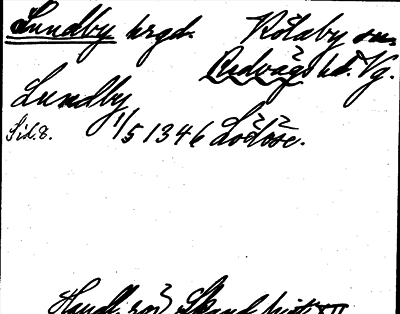 Lundby hrgd. Kölaby sn.
Redvägs hd. Vg.
Lundby
Sid. 8. 1/5 1346 Lödöse.
Handl. rör Skand. hist. XII